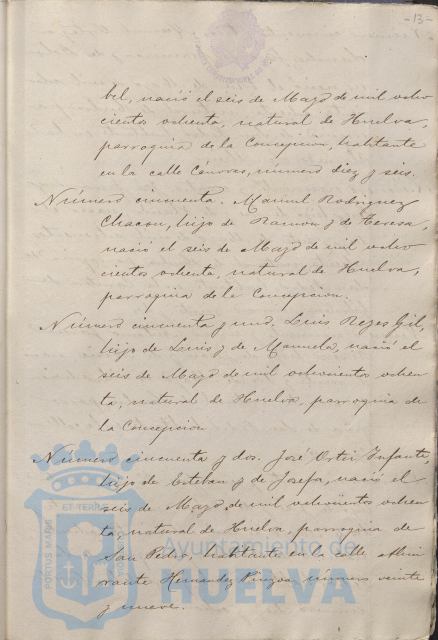 -13-
bel, nació el seis de Mayo de mil ocho
cientos ochenta, natural de Huelva,
parroquia de la Concepcion, habitante
en la calle Cánovas, número diez y seis.
Número cincuenta. Manuel Rodriguez
Chacon, hijo de Ramon y de Teresa,
nació el seis de Mayo de mil ocho
cientos ochenta, natural de Huelva,
parroquia de la Concepcion.
Número cincuenta y uno. Luis Reyes Gil,
hijo de Luis y de Manuela, nació el
seis de Mayo de mil ochocientos ochen
ta, natural de Huelva, parroquia de
la Concepcion
Número cincuenta y dos. José Ortiz Infante,
hijo de Esteban y de Josefa, nació el
seis de Mayo de mil ochocientos ochen
ta natural de Huelva, parroquia de
San Pedro, habitante en la calle Almi
rante Hernandez Pinzon, número veinte
y nueve.
PORTUS MARIS
ET TERRAE
CUSTODIA
Ayuntamiento de
HUELVA